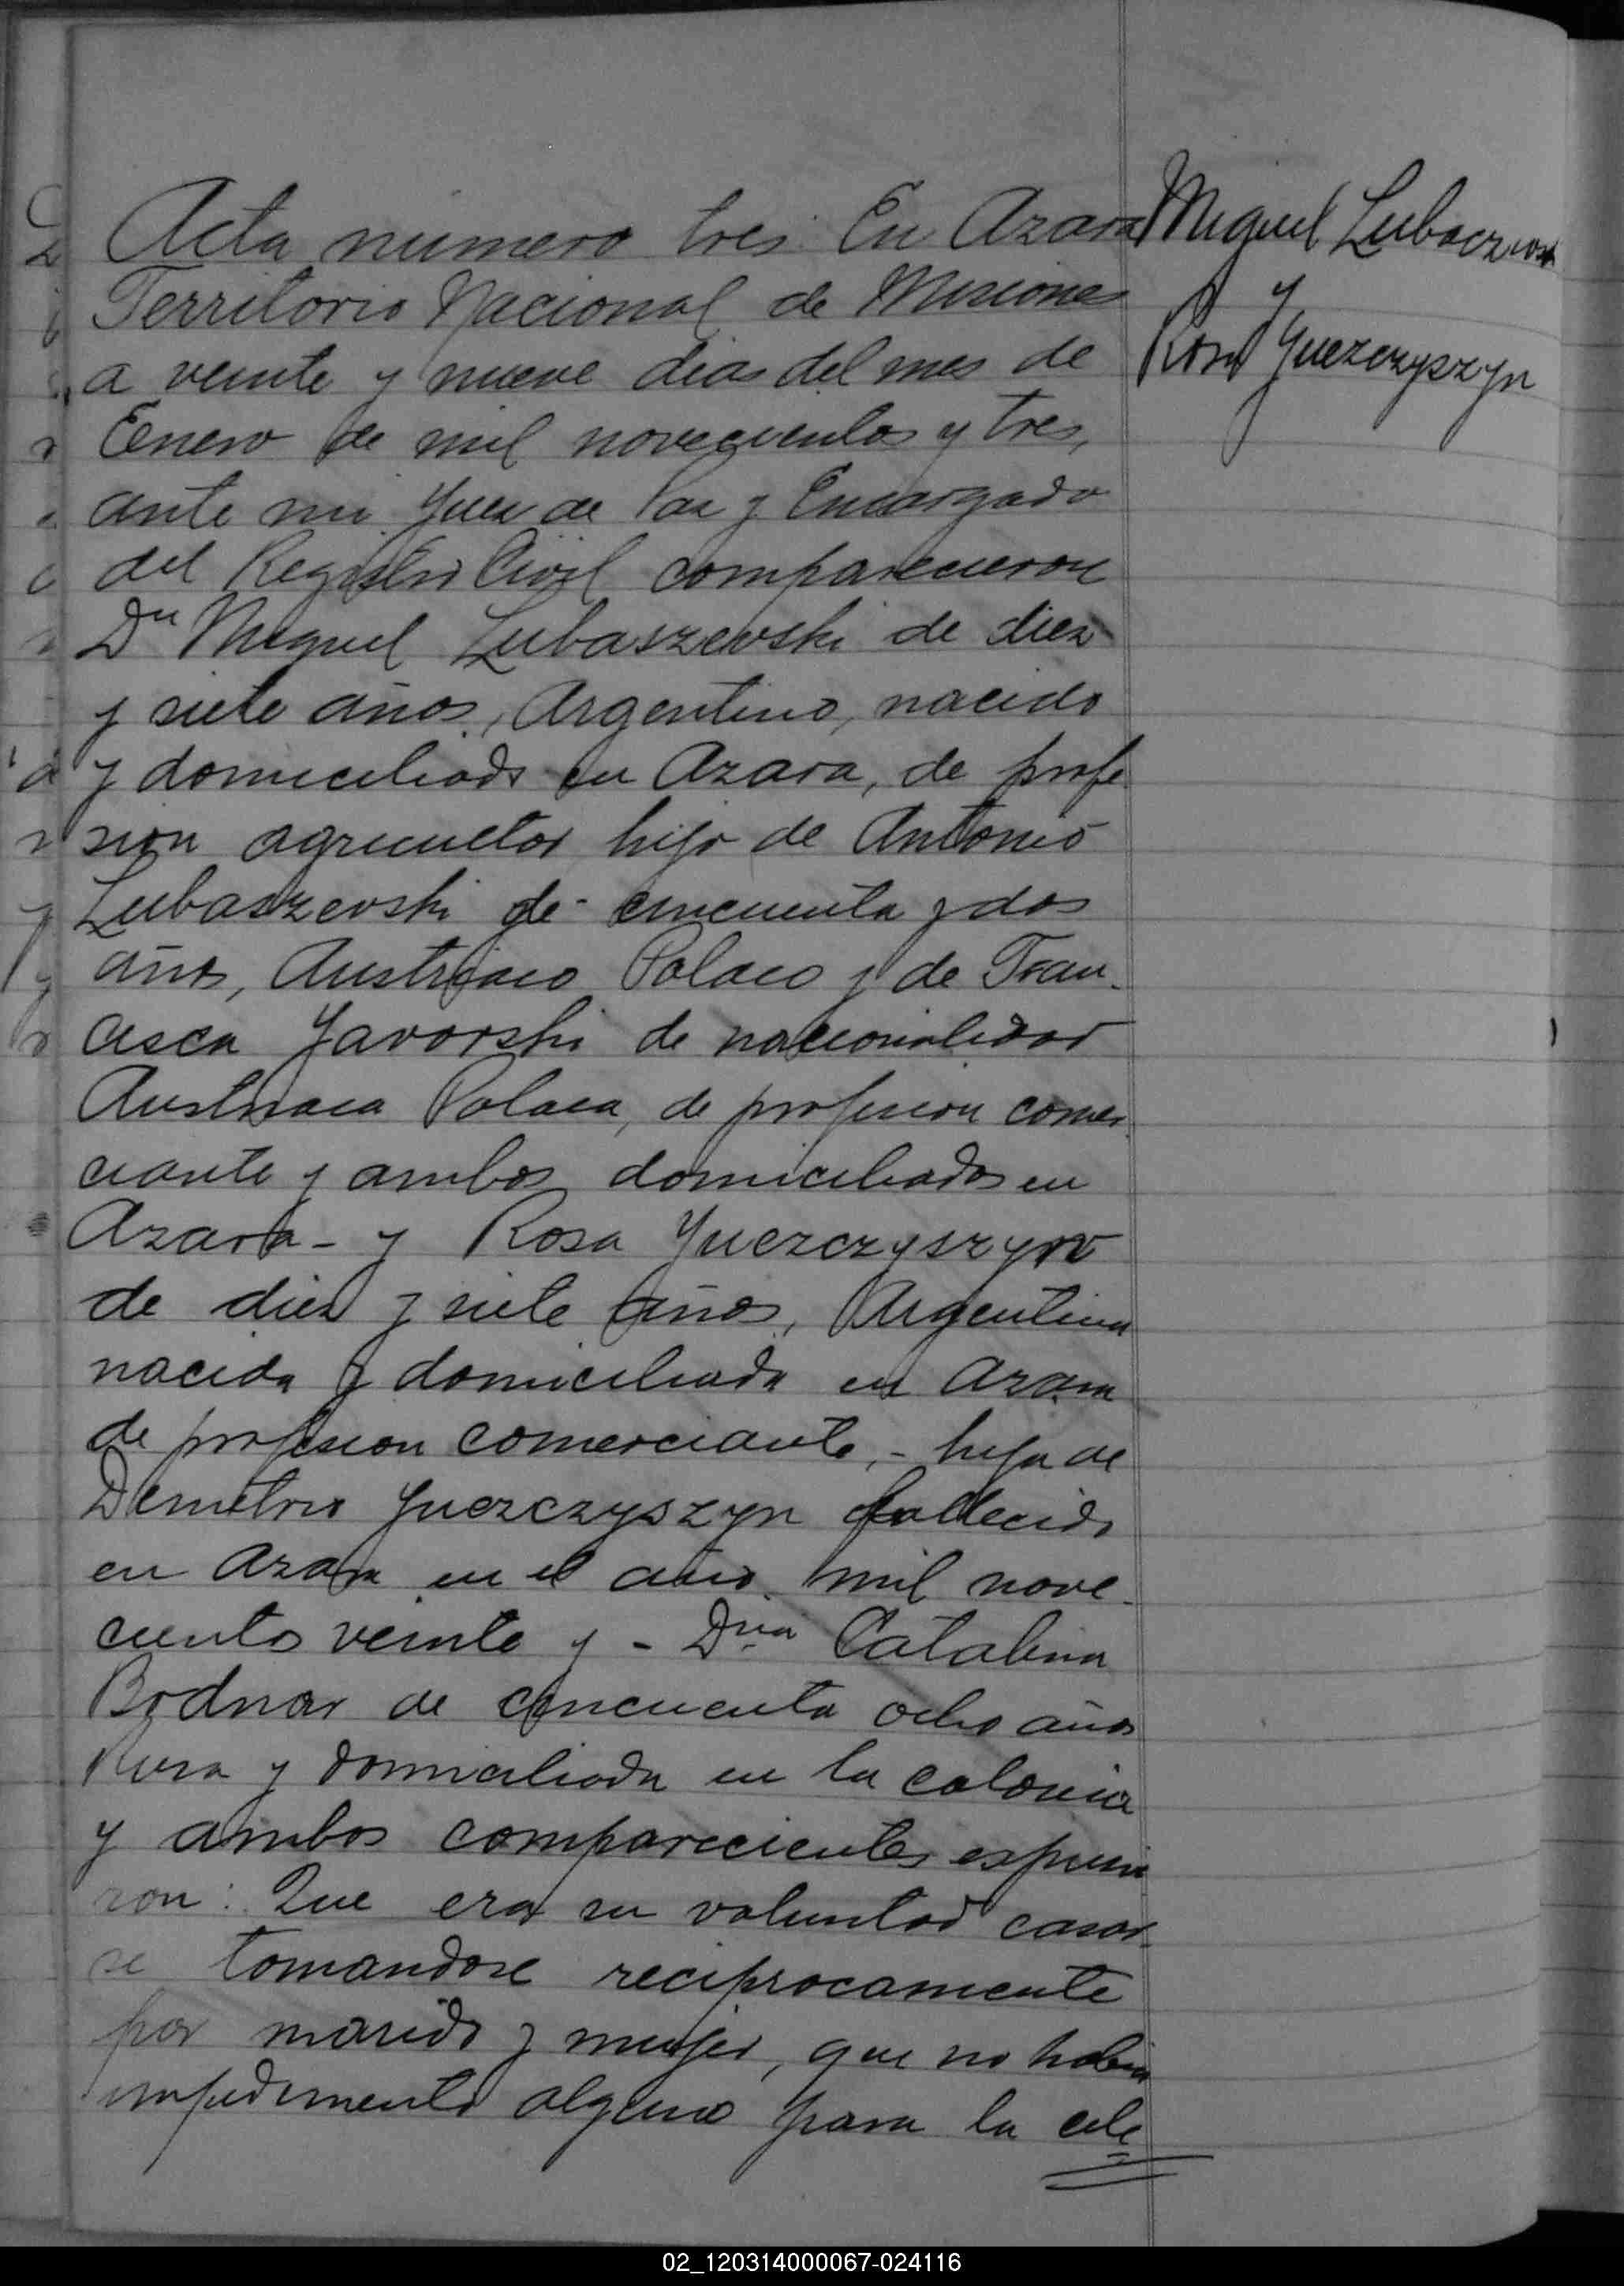 Acta numero tres En Azara
Territorio Nacional de Misiones
a veinte y nueve dias del mes de
Eenero de mil novecientos y tres,
ante mi Juez de Paz y Encargado
del Registro Civil comparecieron
Dn Miguel Lubaszevski de diez
y siete años, Argentino, nacido
y domiciliado en Azara, de profe
sion agricultor hijo de Antonio
Lubaszevski de cincuenta y dos
años, Austriaco Polaco y de Fran-
cisca Javorski de nacionalidad
Austriaca Polaca, de profesion comer
ciante y ambos domiciliados en
Azara - y Rosa Juezczyszyn
de diez y siete años, Argentina
nacida y domiciliada en Azara
de profesion comerciante, - hija de
Demetrio Juezczyszyn fallecido
en Azara en el año mil nove-
cientos veinte y - Dña Catalina
Bodnar de cincuenta ocho años
Rusa y domiciliada en la colonia
y ambos comparecientes
ron: Que era su voluntad casar-
se tomandose reciprocamente
por marido y mujer, que no habia
impedimento alguno para la cele
Miguel Lubaczewsk
y
Rosa Juezczyszyn
02_120314000067-024116